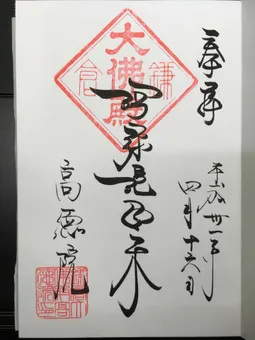 奉拝
平成卅一年
四月十六日
大佛殿
鎌倉
阿弥陀如来
高徳院